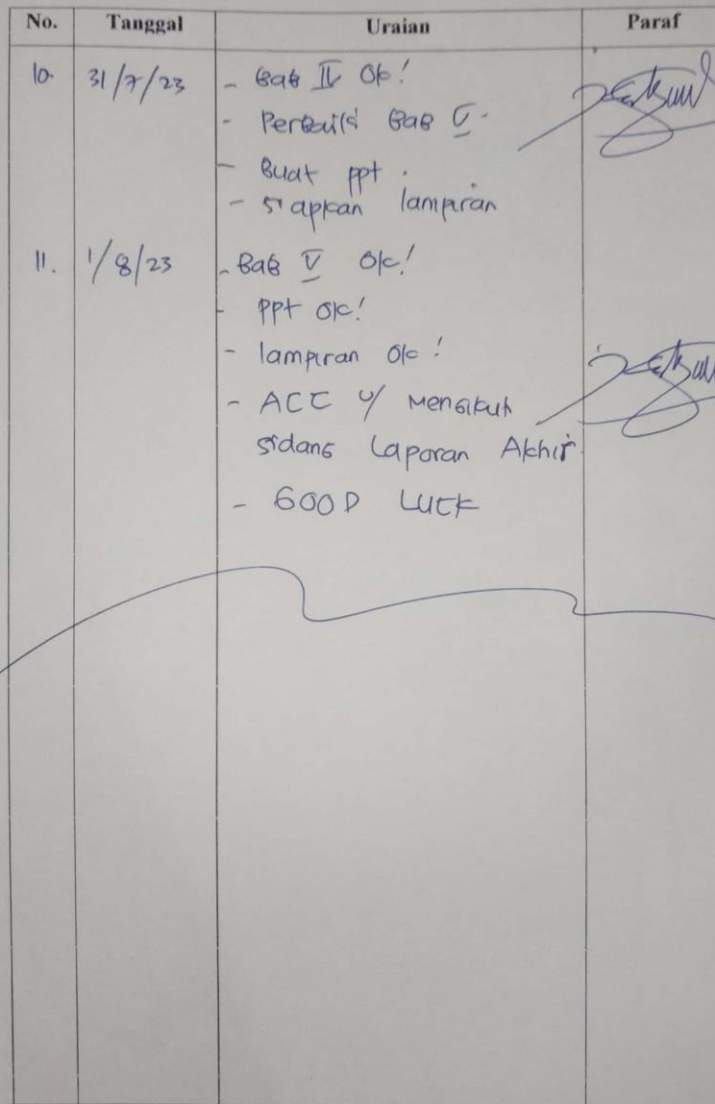 No. Tanggal Uraian Paraf
10. 31/7/23 - Bab IV Ok!
- Perbaiki Bab V.
- Buat ppt.
- siapkan lampiran
11. 1/8/23 - Bab V Ok!
- PPt Ok!
- lampiran Ok!
- ACC u/ Mengikuti
sidang Laporan Akhir
- GOOD LUCK